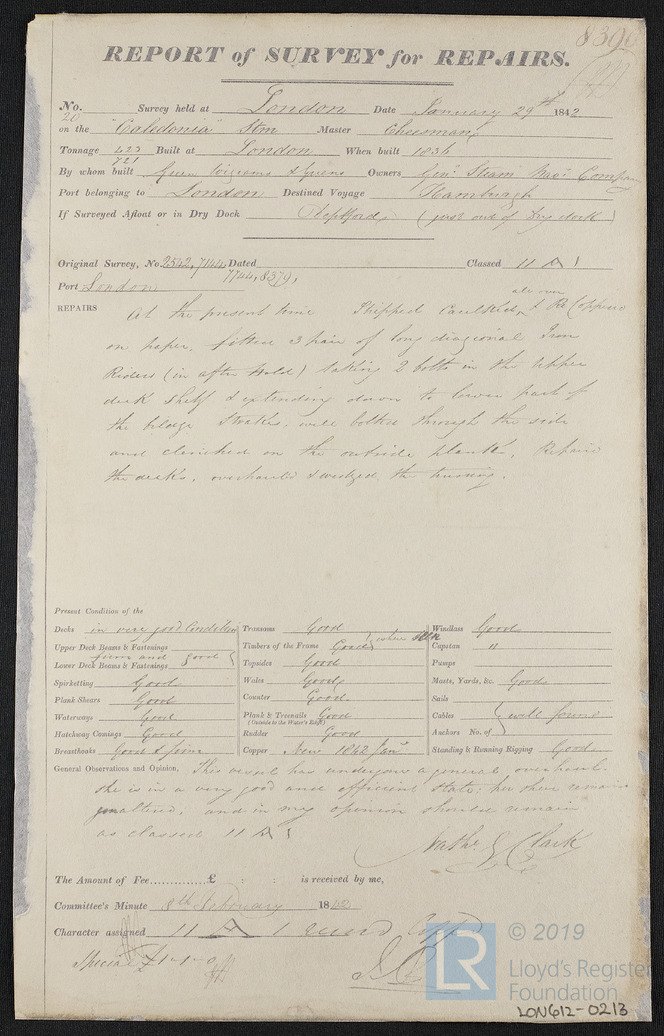 8390
REPORT of SURVEY for REPAIRS.
No. 20 Survey held at London Date January 29th 1842
on the "Caledonia" Stm Master Cheesman
Tonnage 423 / 721 Built at London When built 1836
By whom built Green Wigrams & Greens Owners Genl Steam Navn Company
Port belonging to London Destined Voyage Hamburgh
If Surveyed Afloat or in Dry Dock Deptford, (just out of Dry dock)
Original Survey, No. 2542, 7144, 7744, 8379, Dated Classed 11 A 1
Port London
REPAIRS At the present time Stripped Caulked all over & Re Coppered
on paper, fitted 3 pair of long diagional Iron
Riders (in after Hold) taking 2 bolts in the Upper
deck Shelf & extending down to lower part of
the bilge Strakes, well bolted through the side
and clenched on the outside plank, Repaired
the decks, overhauled & wedged the
Present Condition of the
Decks in very good Condition
Upper Deck Beams & Fastenings
Lower Deck Beams & Fastenings firm and good
Spirketting Good
Plank Shears Good
Waterways Good
Hatchway Comings Good
Breasthooks Good & firm
Transoms Good
Timbers of the Frame Good where seen
Topsides Good
Wales Good
Counter Good
Plank & Treenails Good
(Outside to the Water's Edge)
Rudder Good
Copper New 1842 Jany
Windlass Good
Capstan "
Pumps
Masts, Yards, &c Good
Sails
Cables
Anchors No. of well found
Standing & Running Rigging Good
General Observations and Opinion, This vessel has undergone a general overhaul.
She is in a very good and efficient state, her sheer remains
unaltered, and in my opinion should remain
as classed 11 A 1
Nathl G Clark
The Amount of Fee.............. £ : : is received by me,
Committee's Minute 8th February 1842
Character assigned 11 A 1
Special £1-1-0
© 2019
LR
Lloyd's Register
Foundation
LON612-0213